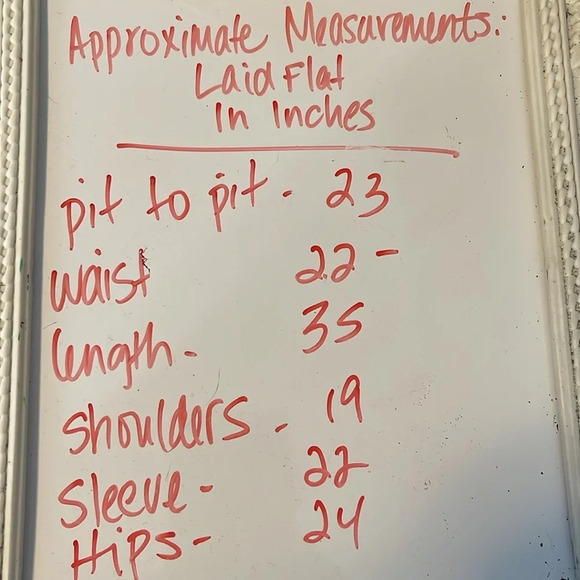 Approximate Measurements:
Laid Flat
In Inches
pit to pit - 23
waist 22 -
length - 35
shoulders - 19
sleeve - 22
Hips - 24